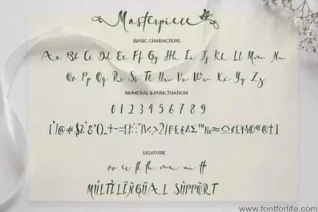 Masterpiece
BASIC CHARACTERS
Aa Bb Cc Dd Ee Ff Gg Hh Ii Jj Kk Ll Mm Nn
Oo Pp Qq Rr Ss Tt Uu Vv Ww Xx Yy Zz
NUMERAL & PUNCTUATION
0 1 2 3 4 5 6 7 8 9
LIGATURE
MULTILINGUAL SUPPORT
www.fontforlife.com